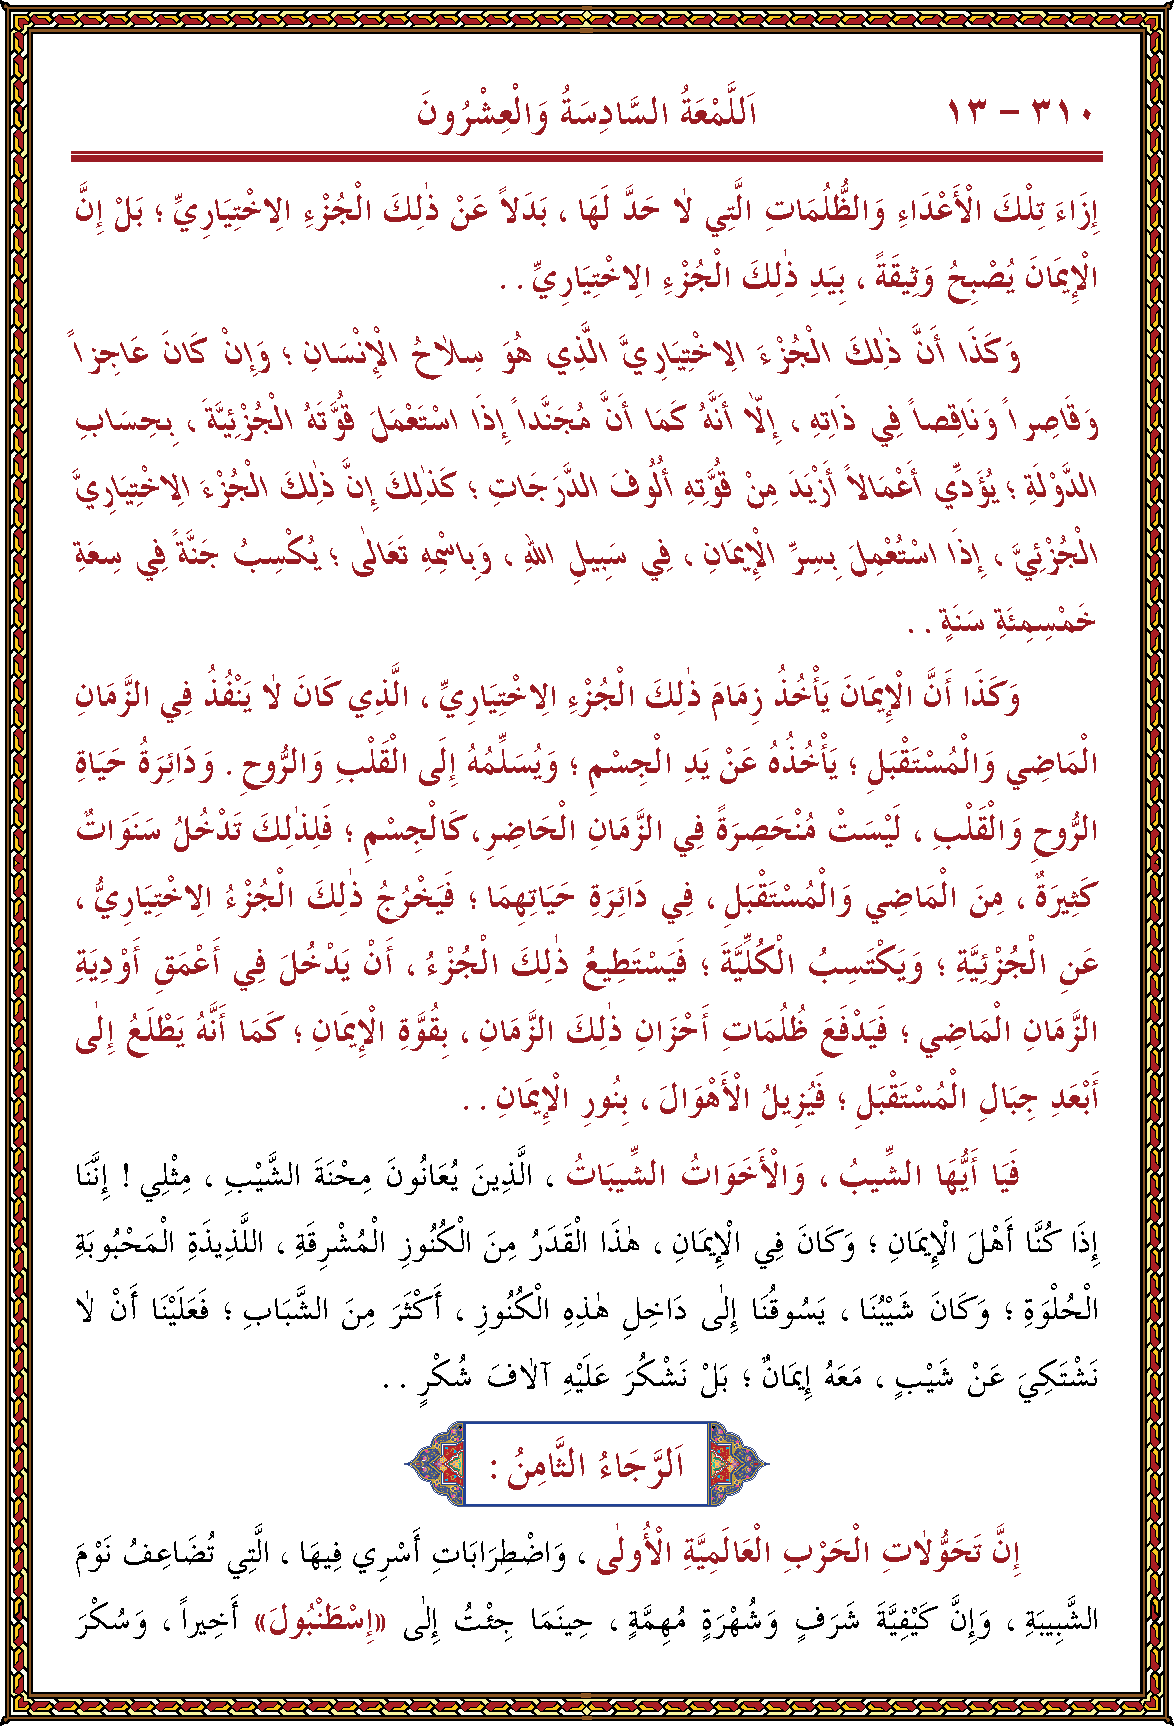 ٣١٠ – ١٣ اَللَّمْعَةُ السَّادِسَةُ وَالْعِشْرُونَ
إِزَاءَ تِلْكَ الْأَعْدَاءِ وَالظُّلُمَاتِ الَّتِي لَا حَدَّ لَهَا ، بَدَلاً عَنْ ذٰلِكَ الْجُزْءِ الِاخْتِيَارِيِّ ؛ بَلْ إِنَّ
الْإِيمَانَ يُصْبِحُ وَثِيقَةً ، بِيَدِ ذٰلِكَ الْجُزْءِ الِاخْتِيَارِيِّ . .
وَكَذَا أَنَّ ذٰلِكَ الْجُزْءَ الِاخْتِيَارِيَّ الَّذِي هُوَ سِلَاحُ الْإِنْسَانِ ؛ وَإِنْ كَانَ عَاجِزاً
وَقَاصِراً وَنَاقِصاً فِي ذَاتِهِ ، إِلَّا أَنَّهُ كَمَا أَنَّ مُجَنَّداً إِذَا اسْتَعْمَلَ قُوَّتَهُ الْجُزْئِيَّةَ ، بِحِسَابِ
الدَّوْلَةِ ؛ يُؤَدِّي أَعْمَالاً أَزْيَدَ مِنْ قُوَّتِهِ أُلُوفَ الدَّرَجَاتِ ؛ كَذٰلِكَ إِنَّ ذٰلِكَ الْجُزْءَ الِاخْتِيَارِيَّ
الْجُزْئِيَّ ، إِذَا اسْتُعْمِلَ بِسِرِّ الْإِيمَانِ ، فِي سَبِيلِ اللهِ ، وَبِاسْمِهِ تَعَالٰى ؛ يُكْسِبُ جَنَّةً فِي سِعَةِ
خَمْسِمِئَةِ سَنَةٍ . .
وَكَذَا أَنَّ الْإِيمَانَ يَأْخُذُ زِمَامَ ذٰلِكَ الْجُزْءِ الِاخْتِيَارِيِّ ، الَّذِي كَانَ لَا يَنْفُذُ فِي الزَّمَانِ
الْمَاضِي وَالْمُسْتَقْبَلِ ؛ يَأْخُذُهُ عَنْ يَدِ الْجِسْمِ ؛ وَيُسَلِّمُهُ إِلَى الْقَلْبِ وَالرُّوحِ . وَدَائِرَةُ حَيَاةِ
الرُّوحِ وَالْقَلْبِ ، لَيْسَتْ مُنْحَصِرَةً فِي الزَّمَانِ الْحَاضِرِ،كَالْجِسْمِ ؛ فَلِذٰلِكَ تَدْخُلُ سَنَوَاتٌ
كَثِيرَةٌ ، مِنَ الْمَاضِي وَالْمُسْتَقْبَلِ ، فِي دَائِرَةِ حَيَاتِهِمَا ؛ فَيَخْرُجُ ذٰلِكَ الْجُزْءُ الِاخْتِيَارِيُّ ،
عَنِ الْجُزْئِيَّةِ ؛ وَيَكْتَسِبُ الْكُلِّيَّةَ ؛ فَيَسْتَطِيعُ ذٰلِكَ الْجُزْءُ ، أَنْ يَدْخُلَ فِي أَعْمَقِ أَوْدِيَةِ
الزَّمَانِ الْمَاضِي ؛ فَيَدْفَعَ ظُلُمَاتِ أَحْزَانِ ذٰلِكَ الزَّمَانِ ، بِقُوَّةِ الْإِيمَانِ ؛ كَمَا أَنَّهُ يَطْلَعُ إِلٰى
أَبْعَدِ جِبَالِ الْمُسْتَقْبَلِ ؛ فَيُزِيلُ الْأَهْوَالَ ، بِنُورِ الْإِيمَانِ . .
فَيَا أَيُّهَا الشِّيبُ ، وَالْأَخَوَاتُ الشِّيبَاتُ ، الَّذِينَ يُعَانُونَ مِحْنَةَ الشَّيْبِ ، مِثْلِي ! إِنَّنَا
إِذَا كُنَّا أَهْلَ الْإِيمَانِ ؛ وَكَانَ فِي الْإِيمَانِ ، هٰذَا الْقَدَرُ مِنَ الْكُنُوزِ الْمُشْرِقَةِ ، اللَّذِيذَةِ الْمَحْبُوبَةِ
الْحُلْوَةِ ؛ وَكَانَ شَيْبُنَا ، يَسُوقُنَا إِلٰى دَاخِلِ هٰذِهِ الْكُنُوزِ ، أَكْثَرَ مِنَ الشَّبَابِ ؛ فَعَلَيْنَا أَنْ لَا
نَشْتَكِيَ عَنْ شَيْبٍ ، مَعَهُ إِيمَانٌ ؛ بَلْ نَشْكُرَ عَلَيْهِ آلَافَ شُكْرٍ . .
اَلرَّجَاءُ الثَّامِنُ :
إِنَّ تَحَوُّلَاتِ الْحَرْبِ الْعَالَمِيَّةِ الْأُولٰى ، وَاضْطِرَابَاتِ أَسْرِي فِيهَا ، الَّتِي تُضَاعِفُ نَوْمَ
الشَّبِيبَةِ ، وَإِنَّ كَيْفِيَّةَ شَرَفٍ وَشُهْرَةٍ مُهِمَّةٍ ، حِينَمَا جِئْتُ إِلٰى «إِسْطَنْبُولَ» أَخِيراً ، وَسُكْرَ